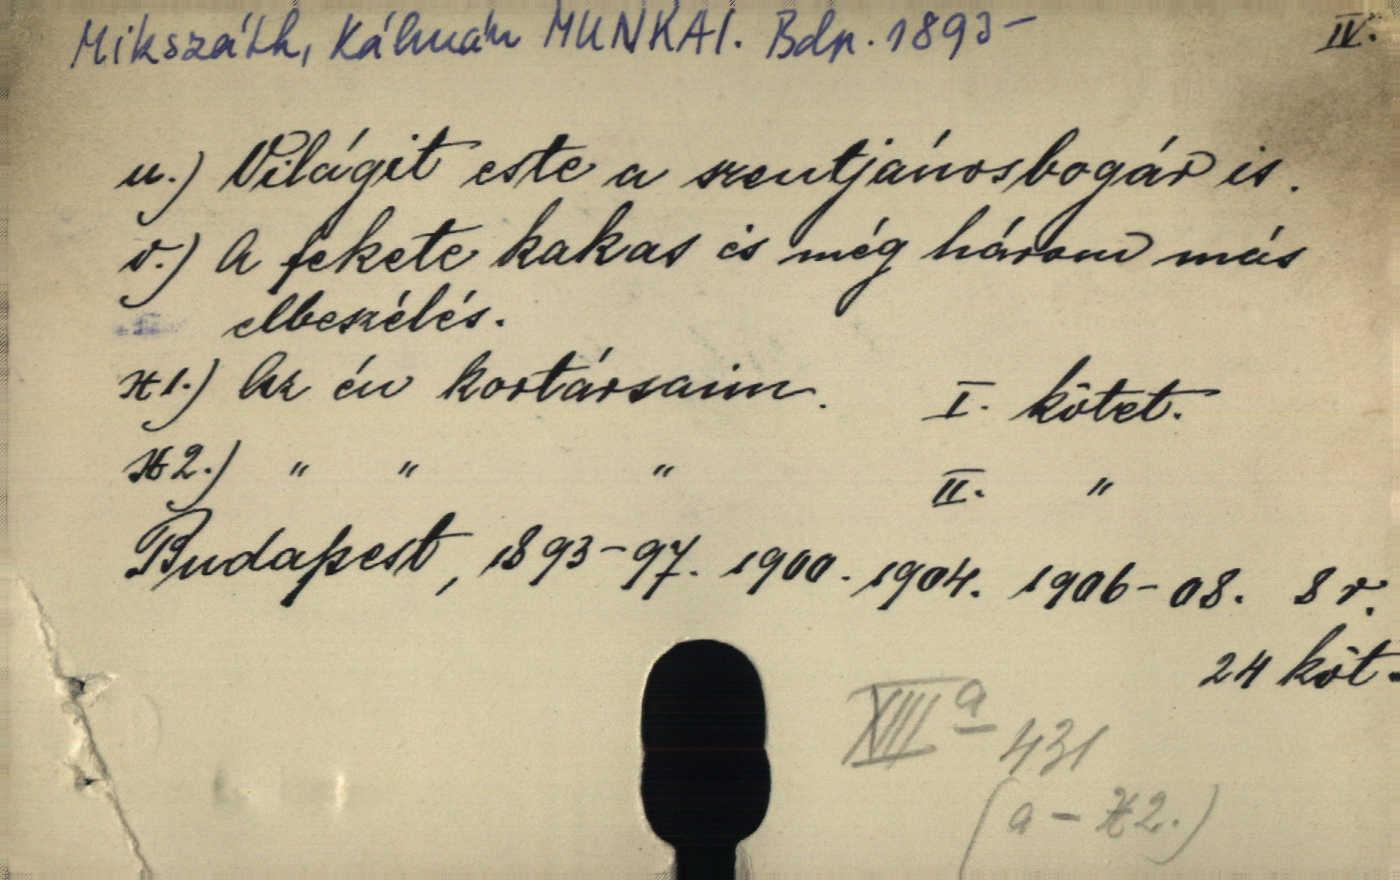 Mikszáth, Kálmán MUNKAI. Bdp. 1893-
IV.
u.) Világit este a szentjánosbogár is.
v.) A fekete kakas és még három más
elbeszélés.
x1.) Az én kortársaim. I. kötet.
x2.) " " " II. "
Budapest, 1893-97. 1900. 1904. 1906-08. 8 r.
24 köt.
XIII a 431
(a - x2.)